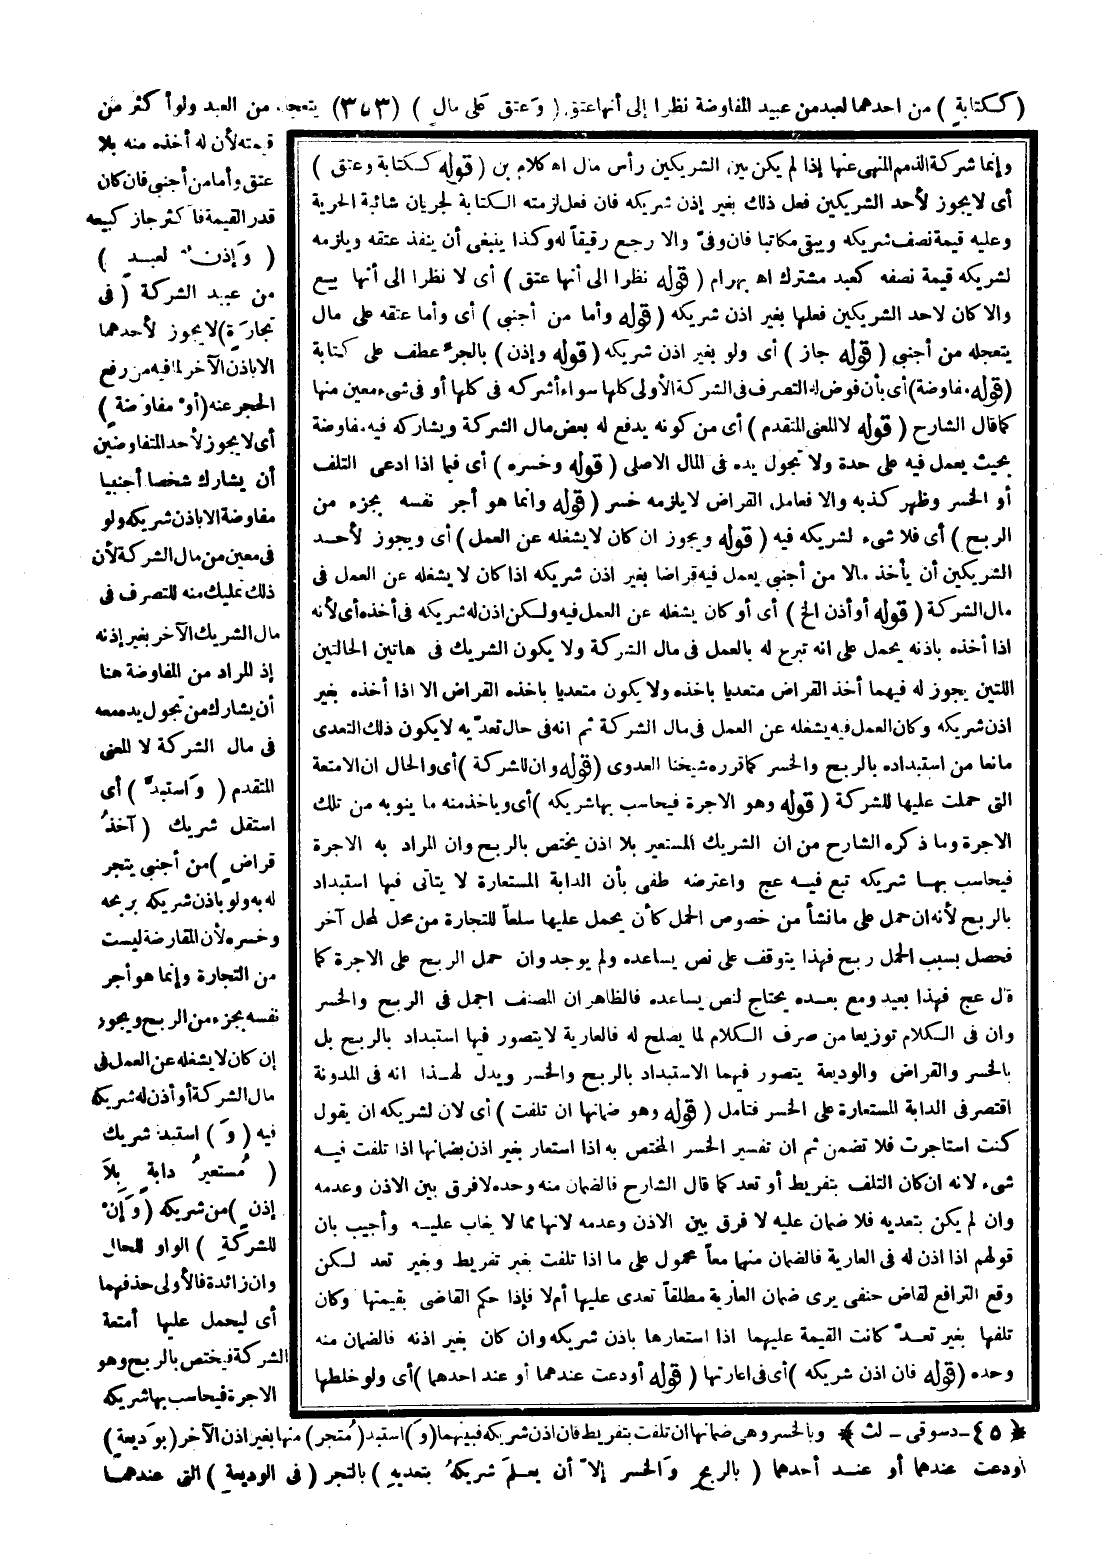 (ككتابة) من احدهما لعبد من عبيد المفاوضة نظرا إلى أنها عتق (وَعتق عَلى مال) (٣٥٣) يتعجله من العبد ولو أكثر من
قيمته لأن له أخذه منه بلا
عتق وأما من أجنبي فان كان
قدر القيمة فأكثر جاز كبيعه
(وَإذن لعبد)
من عبيد الشركة (فى
تجارَة) لا يجوز لأحدهما
الا باذن الآخر لما فيه من رفع
الحجر عنه (أو مفاوضة)
أى لا يجوز لأحد المتفاوضين
أن يشارك شخصا أجنبيا
مفاوضة الا باذن شريكه ولو
فى معين من مال الشركة لأن
ذلك تمليك منه للتصرف فى
مال الشريك الآخر بغير إذنه
إذ المراد من المفاوضة هنا
أن يشارك من تجول يده معه
فى مال الشركة لا المعنى
المتقدم (وَاستبدّ) أى
استقل شريك (آخذُ
قراض) من أجنبي يتجر
له به ولو باذن شريكه بربحه
وخسره لأن المقارضة ليست
من التجارة وإنما هو أجر
نفسه بجزء من الربح ويجوز
إن كان لا يشغله عن العمل فى
مال الشركة أو أذن له شريكه
فيه (وَ) استبد شريك
(مُستعيرُ دابةٍ بِلاَ
إذن) من شريكه (وَإنْ
للشركةِ) الواو للحال
وان زائدة فالأولى حذفهما
أى ليحمل عليها أمتعة
الشركة فيختص بالربح وهو
الاجرة فيحاسب بها شريكه
وإنما شركة الذمم المنهى عنها إذا لم يكن بين الشريكين رأس مال اه كلام بن (قوله ككتابة وعتق)
أى لا يجوز لأحد الشريكين فعل ذلك بغير إذن شريكه فان فعل لزمته الكتابة لجريان شائبة الحرية
وعليه قيمة نصف شريكه ويبقى مكاتبا فان وفى والا رجع رقيقاً له وكذا ينبغى أن ينفذ عتقه ويلزمه
لشريكه قيمة نصفه كعبد مشترك اه بهرام (قوله نظرا الى أنها عتق) أى لا نظرا الى أنها بيع
والا كان لاحد الشريكين فعلها بغير اذن شريكه (قوله وأما من أجنبي) أى وأما عتقه على مال
يتعجله من أجنبي (قوله جاز) أى ولو بغير اذن شريكه (قوله وإذن) بالجر عطف على كتابة
(قوله مفاوضة) أى بأن فوض له التصرف فى الشركة الأولى كلها سواء أشركه فى كلها أو فى شىء معين منها
كما قال الشارح (قوله لا المعنى المتقدم) أى من كونه يدفع له بعض مال الشركة ويشاركه فيه مفاوضة
بحيث يعمل فيه على حدة ولا تجول يده فى المال الاصلى (قوله وخسره) أى فيما اذا ادعى التلف
أو الخسر وظهر كذبه والا فعامل القراض لا يلزمه خسر (قوله وانما هو أجر نفسه بجزء من
الربح) أى فلا شىء لشريكه فيه (قوله ويجوز ان كان لا يشغله عن العمل) أى ويجوز لأحد
الشريكين أن يأخذ مالا من أجنبي يعمل فيه قراضا بغير اذن شريكه اذا كان لا يشغله عن العمل فى
مال الشركة (قوله أو أذن الخ) أى أو كان يشغله عن العمل فيه ولكن اذن له شريكه فى أخذه أى لأنه
اذا أخذه باذنه يحمل على انه تبرع له بالعمل فى مال الشركة ولا يكون الشريك فى هاتين الحالتين
اللتين يجوز له فيهما أخذ القراض متعديا باخذه ولا يكون متعديا باخذه القراض الا اذا أخذه بغير
اذن شريكه وكان العمل فيه يشغله عن العمل فى مال الشركة ثم انه فى حال تعديه لا يكون ذلك التعدى
مانعا من استبداده بالربح والخسر كما قرره شيخنا العدوى (قوله وان للشركة) أى والحال ان الامتعة
التى حملت عليها للشركة (قوله وهو الاجرة فيحاسب بها شريكه) أى وياخذ منه ما ينوبه من تلك
الاجرة وما ذكره الشارح من ان الشريك المستعير بلا اذن يختص بالربح وان المراد به الاجرة
فيحاسب بها شريكه تبع فيه عج واعترضه طفى بأن الدابة المستعارة لا يتاتى فيها استبداد
بالربح لأنه ان حمل على ما نشأ من خصوص الحمل كأن يحمل عليها سلعاً للتجارة من محل لمحل آخر
فحصل بسبب الحمل ربح فهذا يتوقف على نص يساعده ولم يوجد وان حمل الربح على الاجرة كما
قال عج فهذا بعيد ومع بعده يحتاج لنص يساعده فالظاهر ان المصنف اجمل فى الربح والخسر
وان فى الكلام توزيعا من صرف الكلام لما يصلح له فالعارية لا يتصور فيها استبداد بالربح بل
بالخسر والقراض والوديعة يتصور فيهما الاستبداد بالربح والخسر ويدل لهذا انه فى المدونة
اقتصر فى الدابة المستعارة على الخسر فتامل (قوله وهو ضمانها ان تلفت) أى لان لشريكه ان يقول
كنت استاجرت فلا تضمن ثم ان تفسير الخسر المختص به اذا استعار بغير اذن بضمانها اذا تلفت فيه
شىء لانه ان كان التلف بتفريط أو تعد كما قال الشارح فالضمان منه وحده لا فرق بين الاذن وعدمه
وان لم يكن بتعديه فلا ضمان عليه لا فرق بين الاذن وعدمه لانها مما لا يغاب عليه وأجيب بان
قولهم اذا اذن له فى العارية فالضمان منهما معاً محمول على ما اذا تلفت بغير تفريط وبغير تعد لكن
وقع الترافع لقاض حنفى يرى ضمان العارية مطلقاً تعدى عليها أم لا فإذا حكم القاضى بقيمتها وكان
تلفها بغير تعدّ كانت القيمة عليهما اذا استعارها باذن شريكه وان كان بغير اذنه فالضمان منه
وحده (قوله فان اذن شريكه) أى فى اعارتها (قوله أودعت عندهما أو عند احدهما) أى ولو خلطها
﴿٤٥ - دسوقى - لث﴾ وبالخسر وهى ضمانها ان تلفت بتفريط فان اذن شريكه فبينهما (وَ) استبد (مُتجر) منها بغير اذن الآخر (بوَديعةٍ)
أودعت عندهما أو عند أحدهما (بالربح وَالخسر إلاّ أن يعلمَ شريكهُ بتعديهِ) بالتجر (فى الوديعةِ) التى عندهما